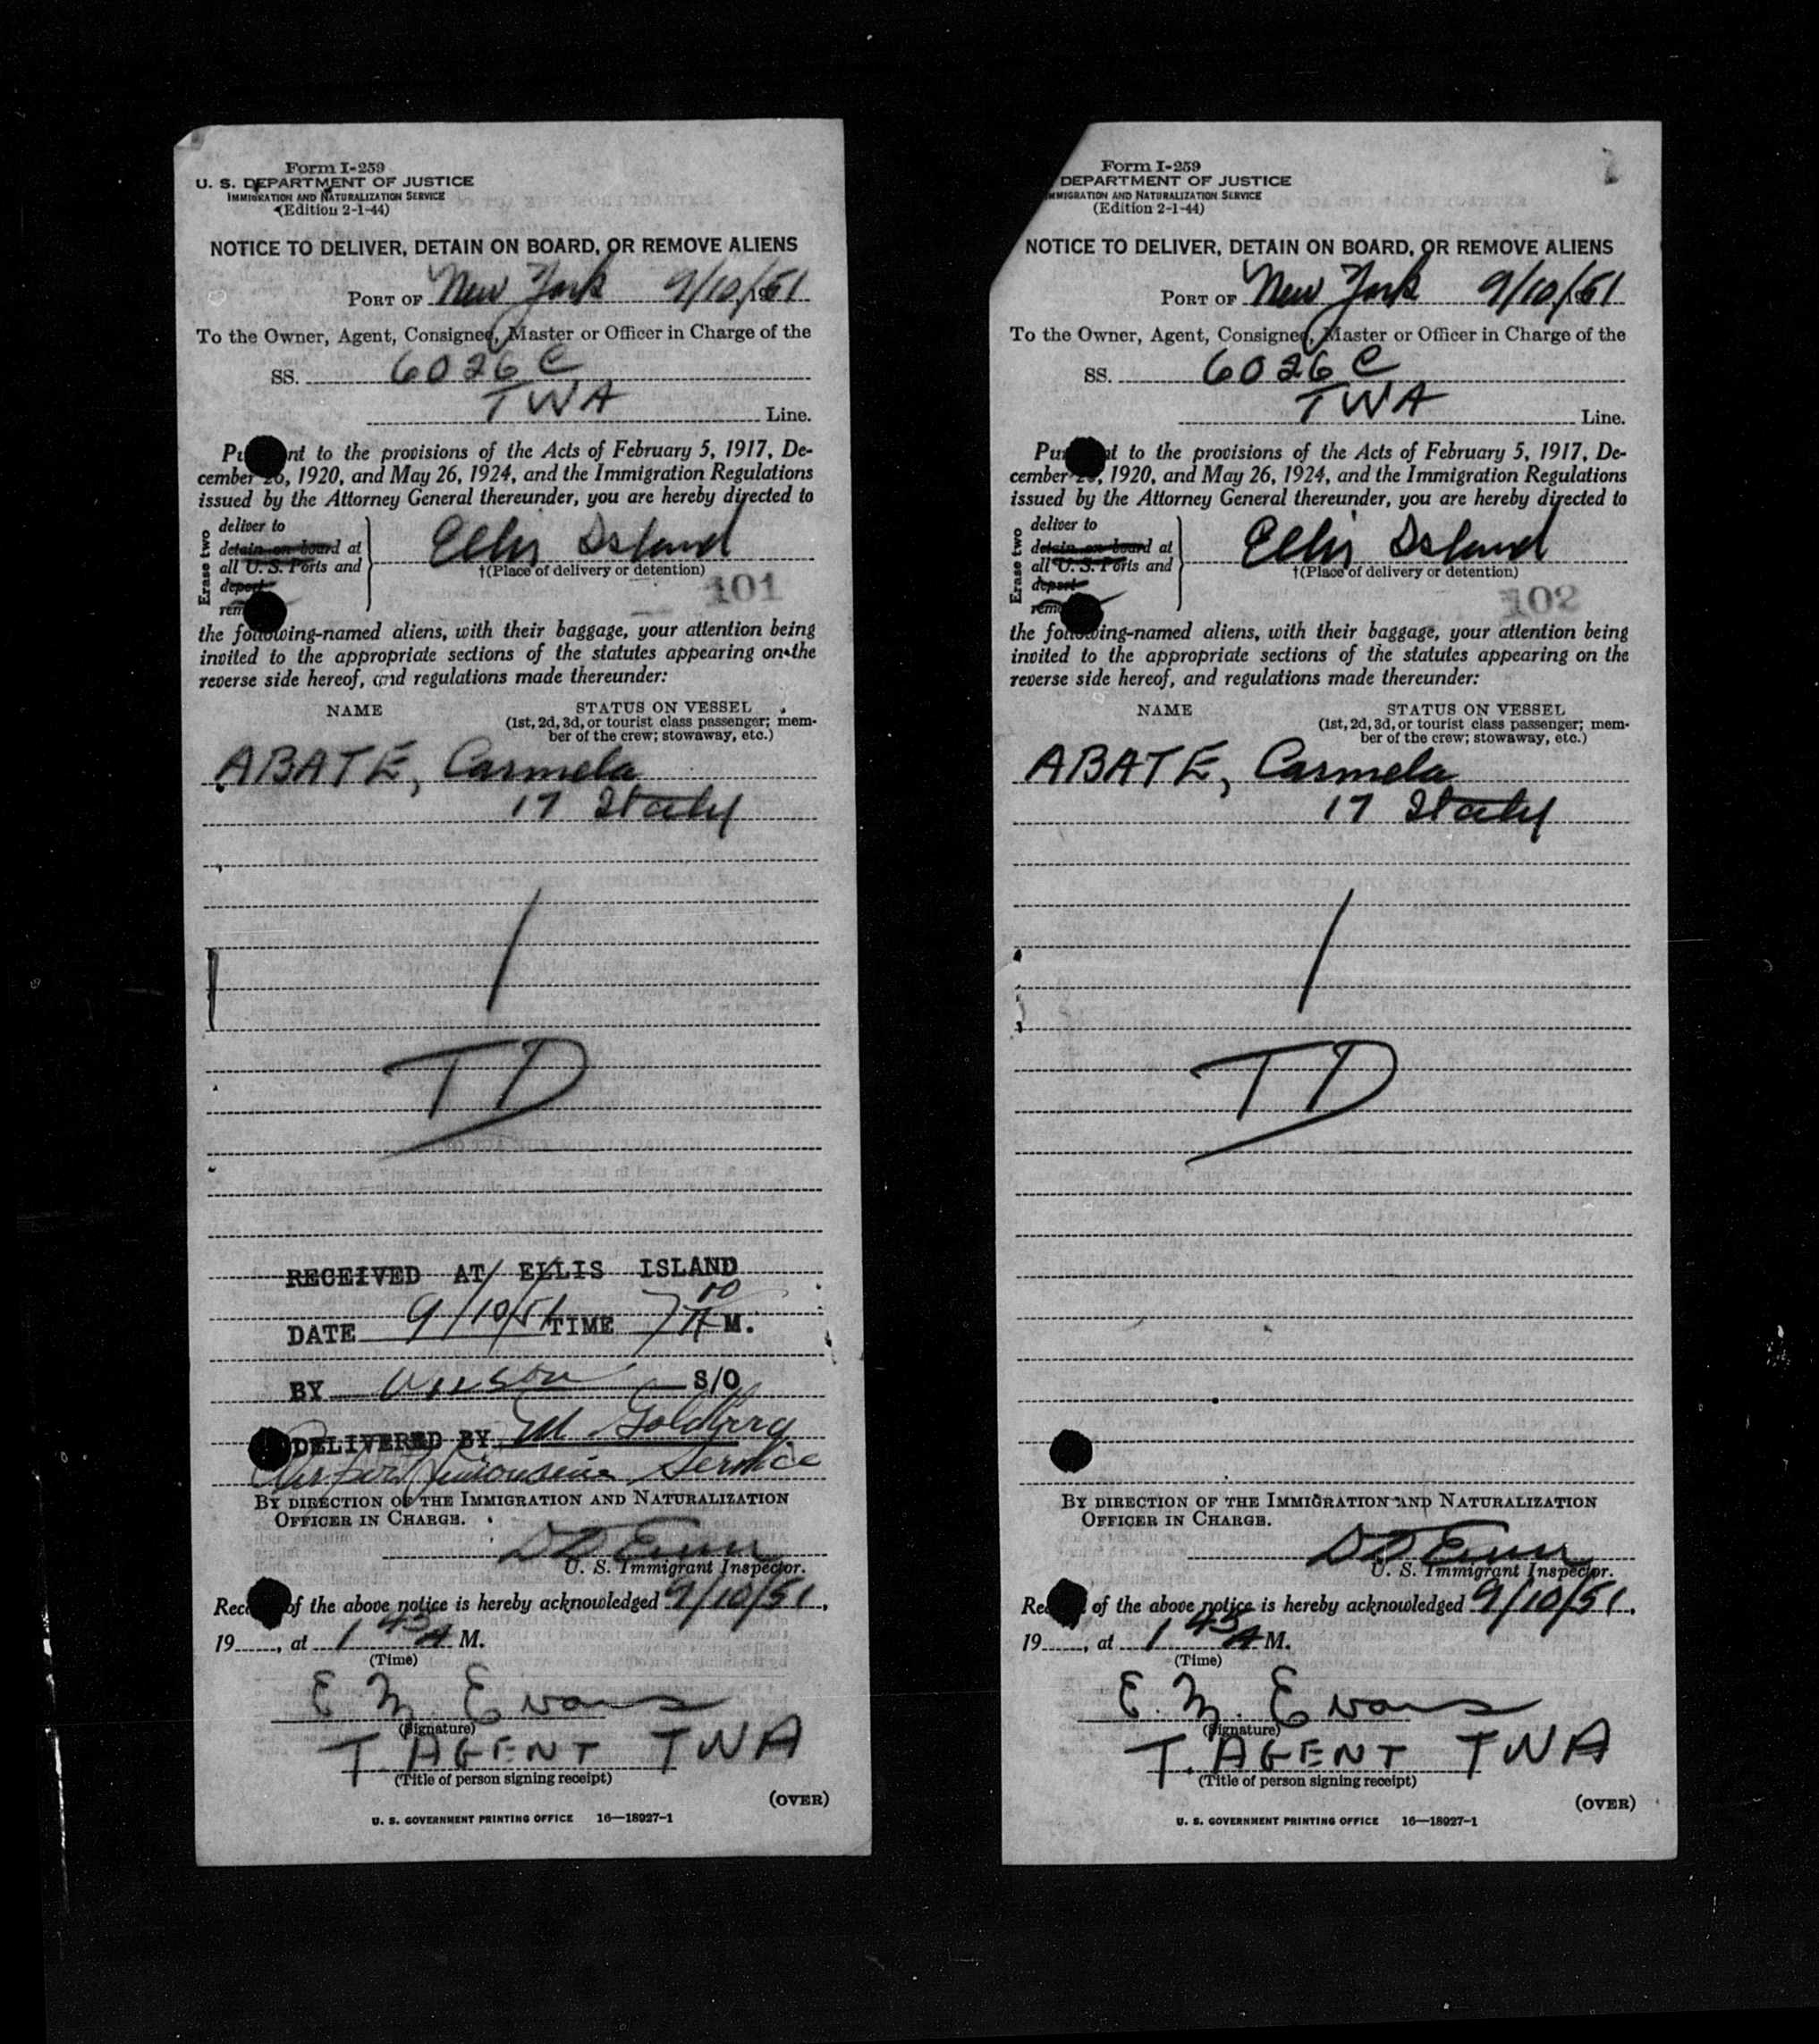 Form I-259
U. S. DEPARTMENT OF JUSTICE
IMMIGRATION AND NATURALIZATION SERVICE
(Edition 2-1-44)
NOTICE TO DELIVER, DETAIN ON BOARD, OR REMOVE ALIENS
PORT OF New York 9/10/51
To the Owner, Agent, Consignee, Master or Officer in Charge of the
SS. 6026 C
TWA Line.
nt to the provisions of the Acts of February 5, 1917, De-
cember 26, 1920, and May 26, 1924, and the Immigration Regulations
issued by the Attorney General thereunder, you are hereby directed to
Erase two
deliver to
detain on board at
all U. S. Ports and
deport
Ellis Island
†(Place of delivery or detention)
101
the following-named aliens, with their baggage, your attention being
invited to the appropriate sections of the statutes appearing on the
reverse side hereof, and regulations made thereunder:
NAME
STATUS ON VESSEL
(1st, 2d, 3d, or tourist class passenger; mem-
ber of the crew; stowaway, etc.)
ABATE, Carmela
17 Italy
/
TD
RECEIVED AT ELLIS ISLAND
DATE 9/10/51 TIME 7 00 M.
BY S/O
DELIVERED BY M Goldberg
Airport Limousine Service
BY DIRECTION OF THE IMMIGRATION AND NATURALIZATION
OFFICER IN CHARGE.
U. S. Immigrant Inspector.
of the above notice is hereby acknowledged 9/10/51,
19 , at 1 45 A M.
(Time)
E. M. Evans
(Signature)
T. AGENT TWA
(Title of person signing receipt)
(OVER)
U. S. GOVERNMENT PRINTING OFFICE 16—18927-1
Form I-259
DEPARTMENT OF JUSTICE
IMMIGRATION AND NATURALIZATION SERVICE
(Edition 2-1-44)
NOTICE TO DELIVER, DETAIN ON BOARD, OR REMOVE ALIENS
PORT OF New York 9/10/51
To the Owner, Agent, Consignee, Master or Officer in Charge of the
SS. 6026 C
TWA Line.
to the provisions of the Acts of February 5, 1917, De-
cember , 1920, and May 26, 1924, and the Immigration Regulations
issued by the Attorney General thereunder, you are hereby directed to
Erase two
deliver to
detain on board at
all U. S. Ports and
deport
Ellis Island
†(Place of delivery or detention)
102
the following-named aliens, with their baggage, your attention being
invited to the appropriate sections of the statutes appearing on the
reverse side hereof, and regulations made thereunder:
NAME
STATUS ON VESSEL
(1st, 2d, 3d, or tourist class passenger; mem-
ber of the crew; stowaway, etc.)
ABATE, Carmela
17 Italy
/
TD
BY DIRECTION OF THE IMMIGRATION AND NATURALIZATION
OFFICER IN CHARGE.
U. S. Immigrant Inspector.
of the above notice is hereby acknowledged 9/10/51,
19 , at 1 45 A M.
(Time)
E. M. Evans
(Signature)
T. AGENT TWA
(Title of person signing receipt)
(OVER)
U. S. GOVERNMENT PRINTING OFFICE 16—18927-1